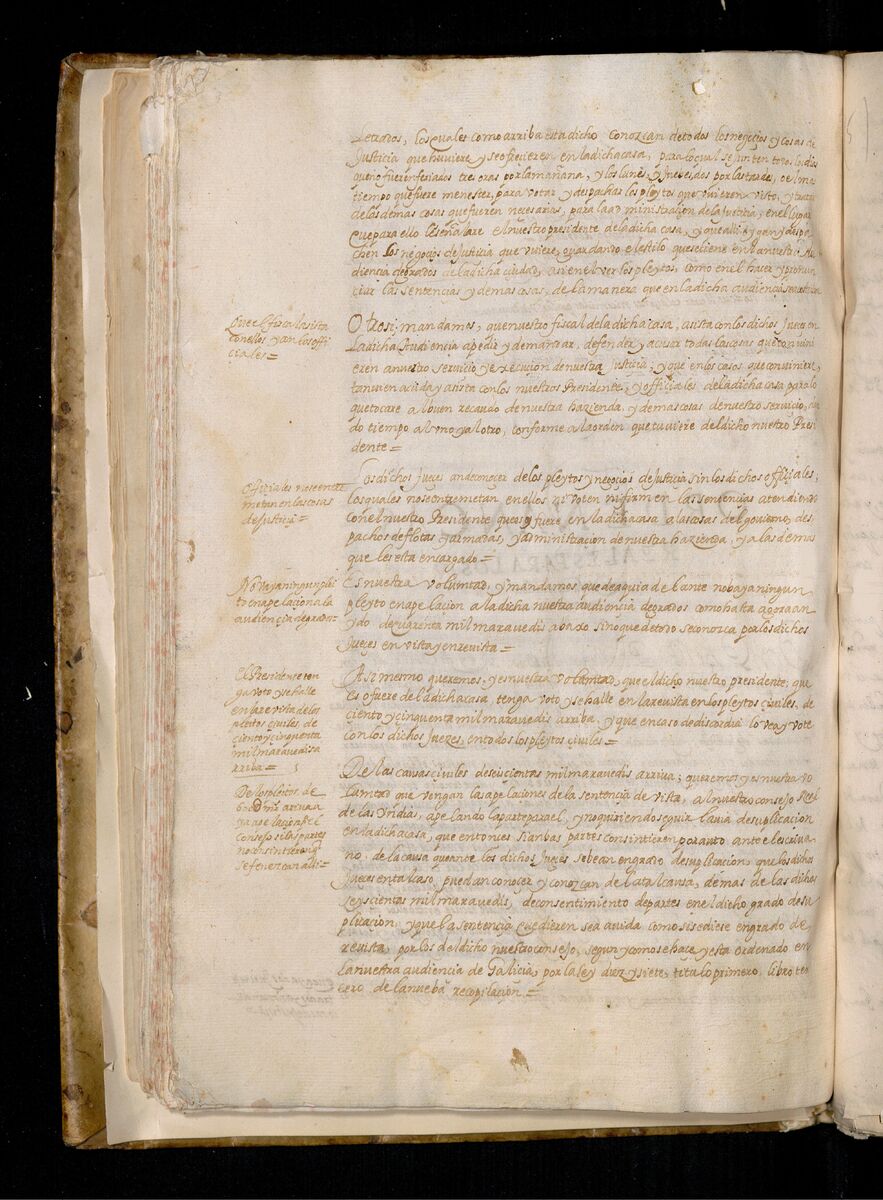 Letrados, los quales como arriba esta dicho conozcan de todos los negoçios y cosas de
Justicia que huviere, y se ofreçieren en la dicha casa, para lo qual se junten todos los dias
que no fueren feriados tres oras por la mañana, y los lunes, y Jueves, dos por la tarde, o el mas
tiempo que fuere menester, para votar, y despachar los pleytos que uvieren visto, y tratar
de las demas cosas que fueren necesarias, para la administraçion de la justiçia, en el lugar
que para ello les señalare el nuestro presidente de la dicha casa, y que alli oygan y despa
chen los negoçios de Justiçia que uviere, guardando el estilo que se tiene en la nuestra Au
diençia de grados de la dicha ciudad, asi en el ver los pleytos, como en el hacer y pronun
ziar las sentençias, y demas cosas, de la manera que en la dicha audiençia se
Que el fiscal asista
con ellos y con los offi
çiales=
Otrosi, mandamos, que nuestro fiscal de la dicha casa, asista con los dichos Jueçes en
la dicha Audiençia a pedir y demandar, defender, y acusar todas las cosas que convini
eren a nuestro serviçio y execuçion de nuestra Justiçia, y que en los casos que conviniere,
tanvien acuda y asista con los nuestros Presidente, y officiales de la dicha casa para lo
que tocare al buen recaudo de nuestra hazienda, y demas cosas de nuestro serviçio, dan
do tiempo al uno y al otro, conforme a la orden que tuviere del dicho nuestro Presi
dente=
Ofiçiales no se entre
metan en las cosas
de justiçia
Los dichos jueçes an de conoçer de los pleytos y negoçios de Justiçia sin los dichos offiçiales,
los quales no se entremetan en ellos ni voten ni firmen las sentençias atendiendo
con el nuestro Presidente que es o fuere en la dicha casa a las cosas del govierno, des
pachos de flotas y armadas, y administraçion de nuestra hazienda, y a las demas
que les esta encargado=
No vaya ningun plei
to en apelaçion a la
audiençia de grados=
Es nuestra voluntad, y mandamos que de aqui adelante no baya ningun
pleyto en apelaçion a la dicha nuestra audiençia de grados como hasta agora an
ydo de quarenta mil maravedis abaxo sino que de todo se conozca por los dichos
Jueçes en vista y en revista=
El Presidente ten
ga voto y se halle
en la revista de los
pleitos çiviles, de
çiento y çinquenta
mil maravedis a
rriba=
Asi mesmo queremos, y es nuestra voluntad, que el dicho nuestro presidente, que
es o fuere de la dicha casa, tenga voto y se halle en la revista en los pleytos çiviles, de
ciento y çinquenta mil maravedis arriba, y que en caso de discordia lo vea y vote
con los dichos Jueçes, en todos los pleytos çiviles=
De los pleitos de
600 mil arriva a
ya apelaçion al
Consejo si las partes
no consintieren q
se fenezcan alli=
De las causas çiviles de seiscientas mil maravedis arriva; queremos y es nuestra vo
luntad que vengan las apelaciones de la sentencia de vista, al nuestro consejo Real
de las Yndias, apelando la parte para el, y no quiriendo seguir la via de suplicacion
en la dicha casa, que entonces si anbas partes consintieren por auto ante el escriva
no, de la causa que ante los dichos Jueçes se bean en grado de suplicaçion, que los dichos
Jueçes en tal caso, puedan conoçer y conozcan de la tal causa, demas de las dichas
seiscientas mil maravedis, de consentimiento de partes en el dicho grado de su
plicaçion, y que la sentençia que dieren sea avida como si se diese en grado de
revista, por los del dicho nuestro consejo, segun y como se haçe y esta ordenado en
la nuestra audiençia de Galiçia, por la ley diez y siete, titulo primero, libro ter
cero de la nueba recopilaçion=